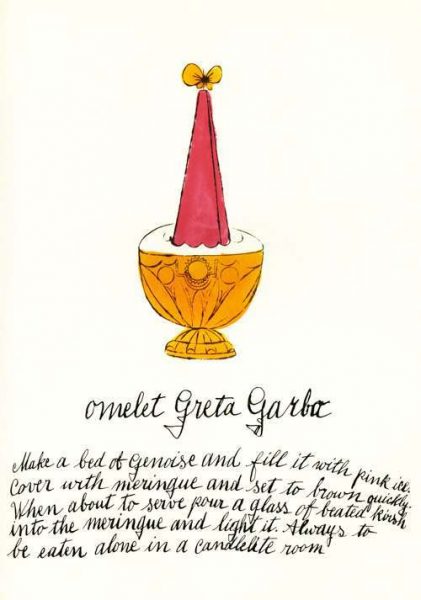 omelet Greta Garbo
Make a bed of Genoise and fill it with pink ice.
Cover with meringue and set to brown quickly.
When about to serve pour a glass of heated kirsh
into the meringue and light it. Always to
be eaten alone in a candlelite room